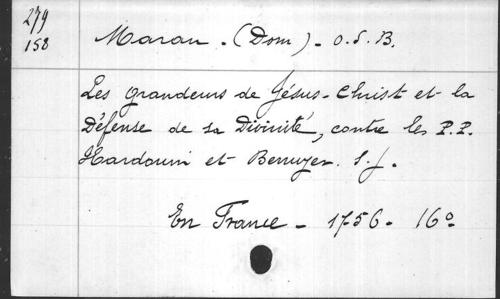 279
158
Maran. (Dom). O.S.B.
Les grandeurs de Jésus-Christ et la
Défense de sa Divinité, contre les P.P.
Hardouin et Berruyer. S.J.
En France - 1756 - 16º